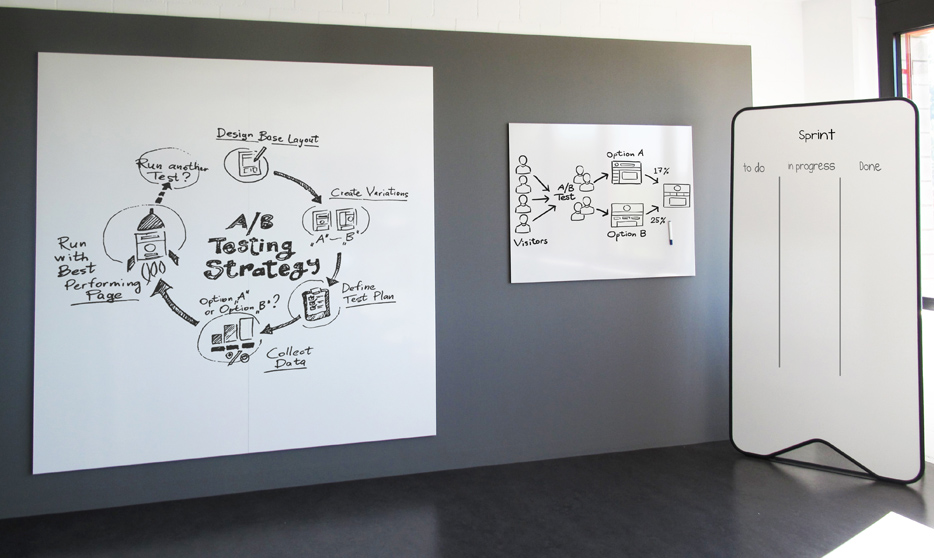 Design Base Layout
Run another
Test?
Create Variations
„A" – „B"
A/B
Testing
Strategy
Run
with
Best
Performing
Page
Define
Test Plan
Option „A"
or Option „B"?
Collect
Data
Option A
17%
A/B
Test
Visitors
25%
Option B
Sprint
to do
in progress
Done